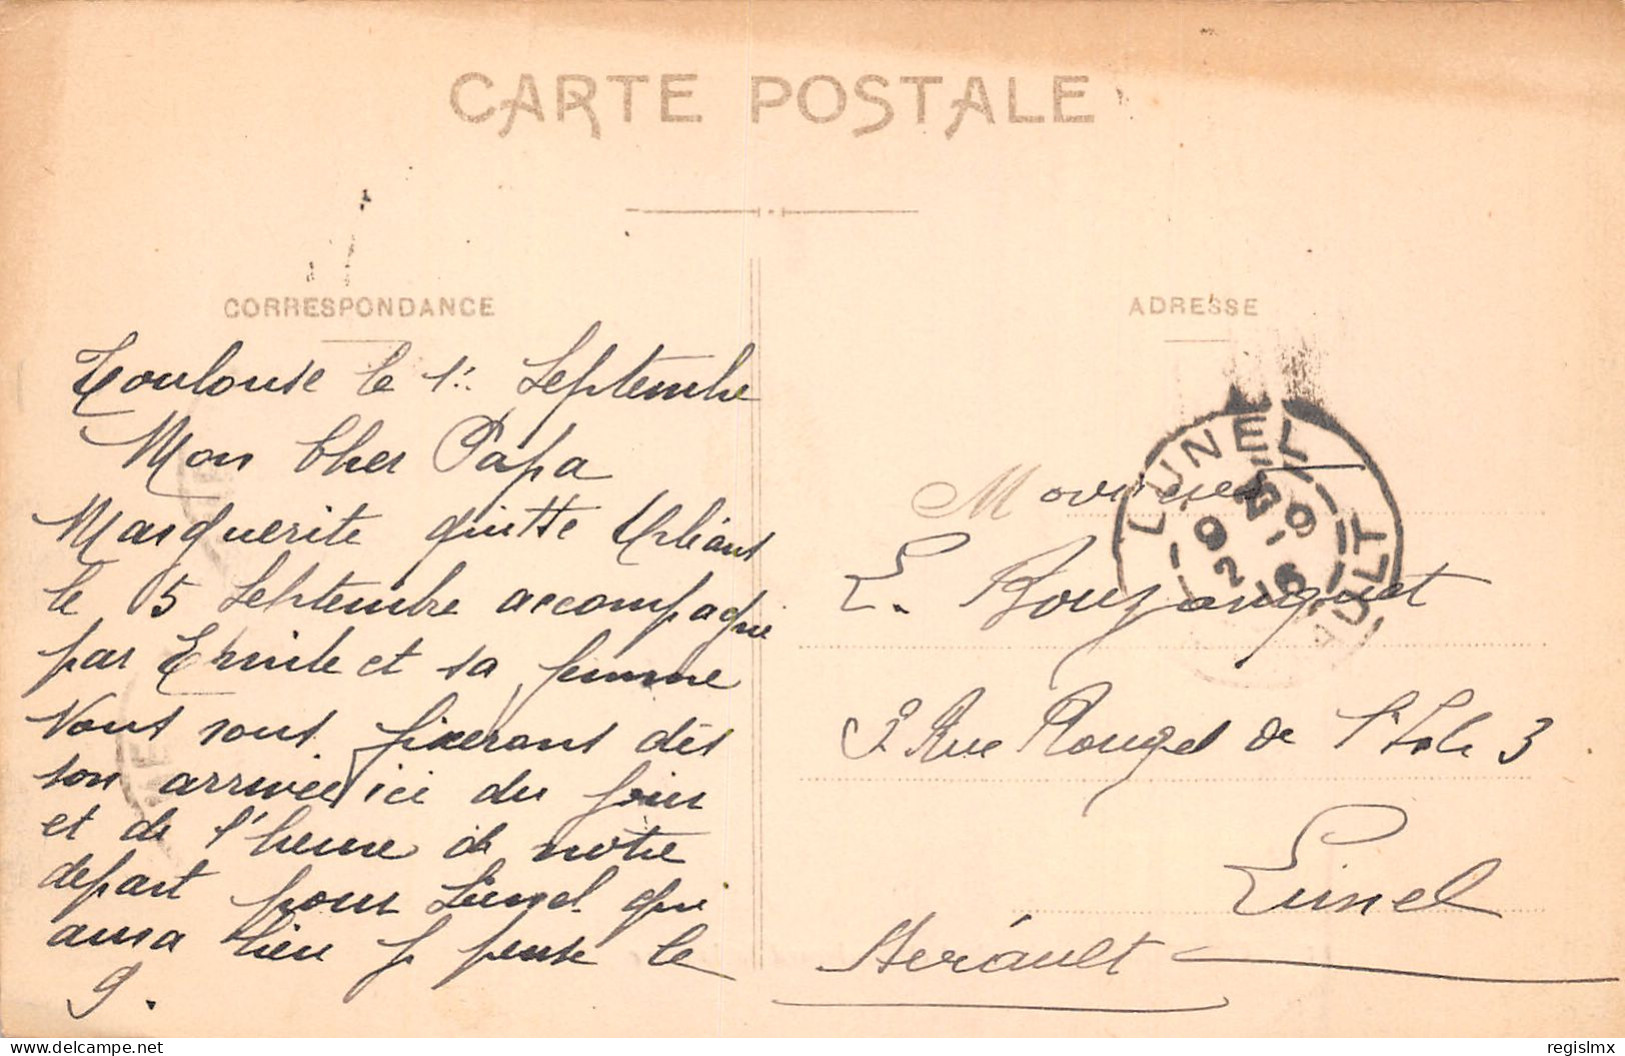 CARTE POSTALE
CORRESPONDANCE
Toulouse le 1er Septembre
Mon Cher Papa
Marguerite quitte Orléans
le 5 Septembre accompagnée
par Emile et sa femme
Nous vous fixerons dès
son arrivée ici du jour
et de l'heure de notre
départ pour Lunel qui
aura lieu je pense le
9.
ADRESSE
LUNEL
HÉRAULT
Monsieur
E. Bouzanquet
3 Rue Rouget de l'Isle 3
Lunel
Hérault
delcampe.net
regislmx